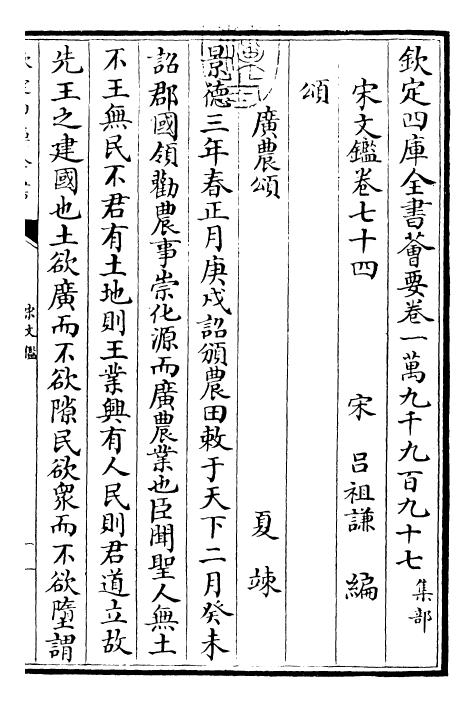 欽定四庫全書薈要卷一萬九千九百九十七 集部
宋文鑑卷七十四 宋 呂祖謙 編
頌
廣農頌 夏竦
景德三年春正月庚戌詔頒農田敕于天下二月癸未
詔郡國領勸農事崇化源而廣農業也臣聞聖人無土
不王無民不君有土地則王業興有人民則君道立故
先王之建國也土欲廣而不欲隙民欲衆而不欲墮謂
宋文鑑
一